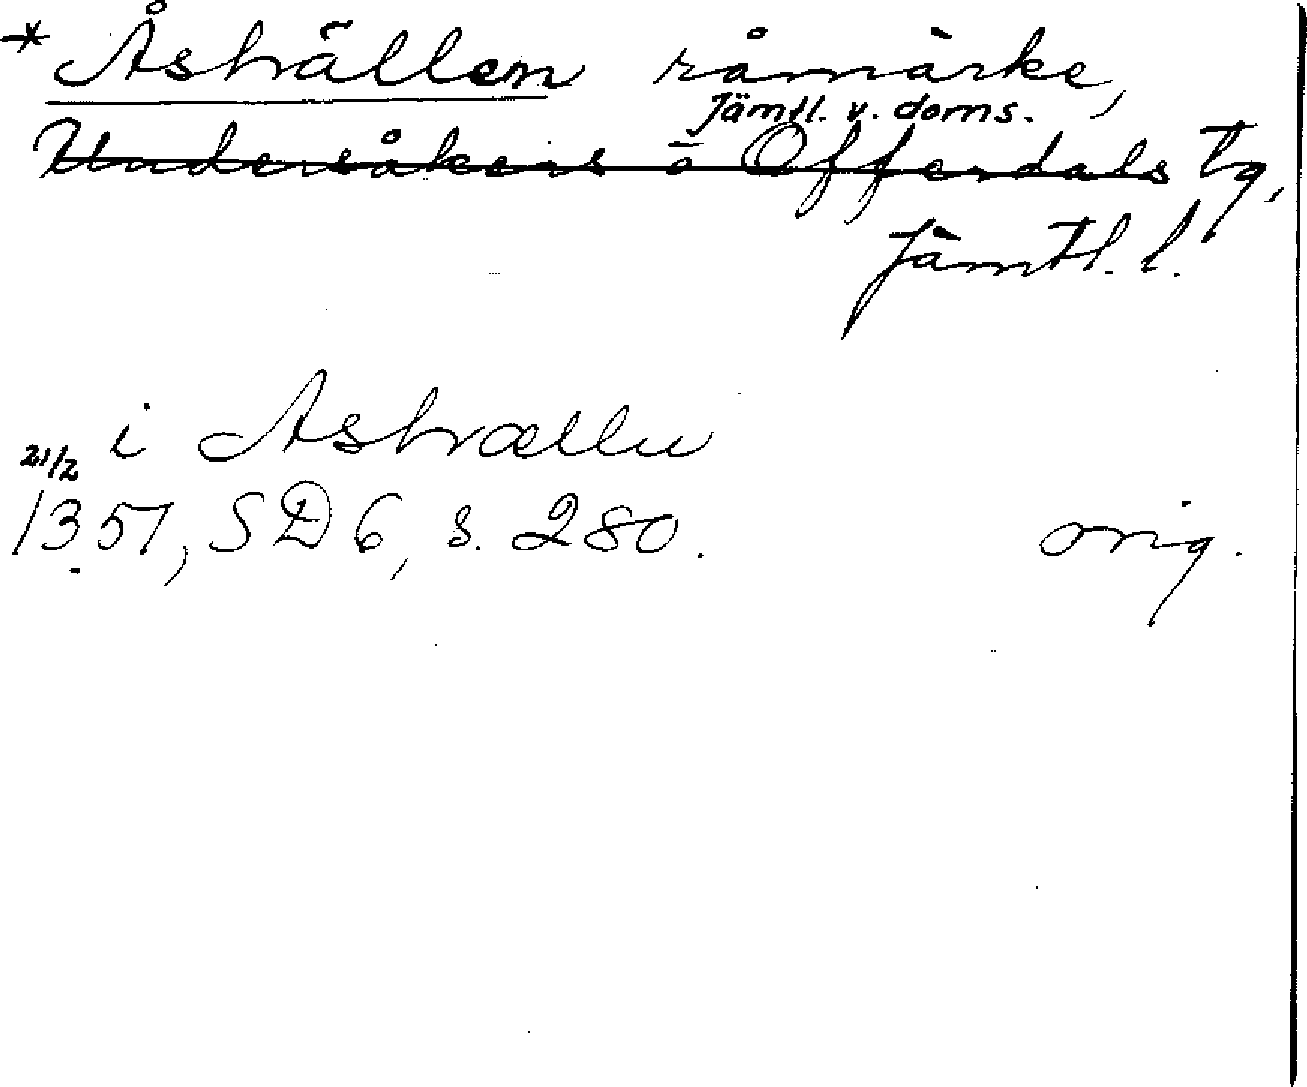 *Åshällen råmärke,
Jämtl. v. doms.
Undersåkers o Offerdals tg,
Jämtl. l.
i Ashællu
21/2
1351, SD 6, s. 280. orig.